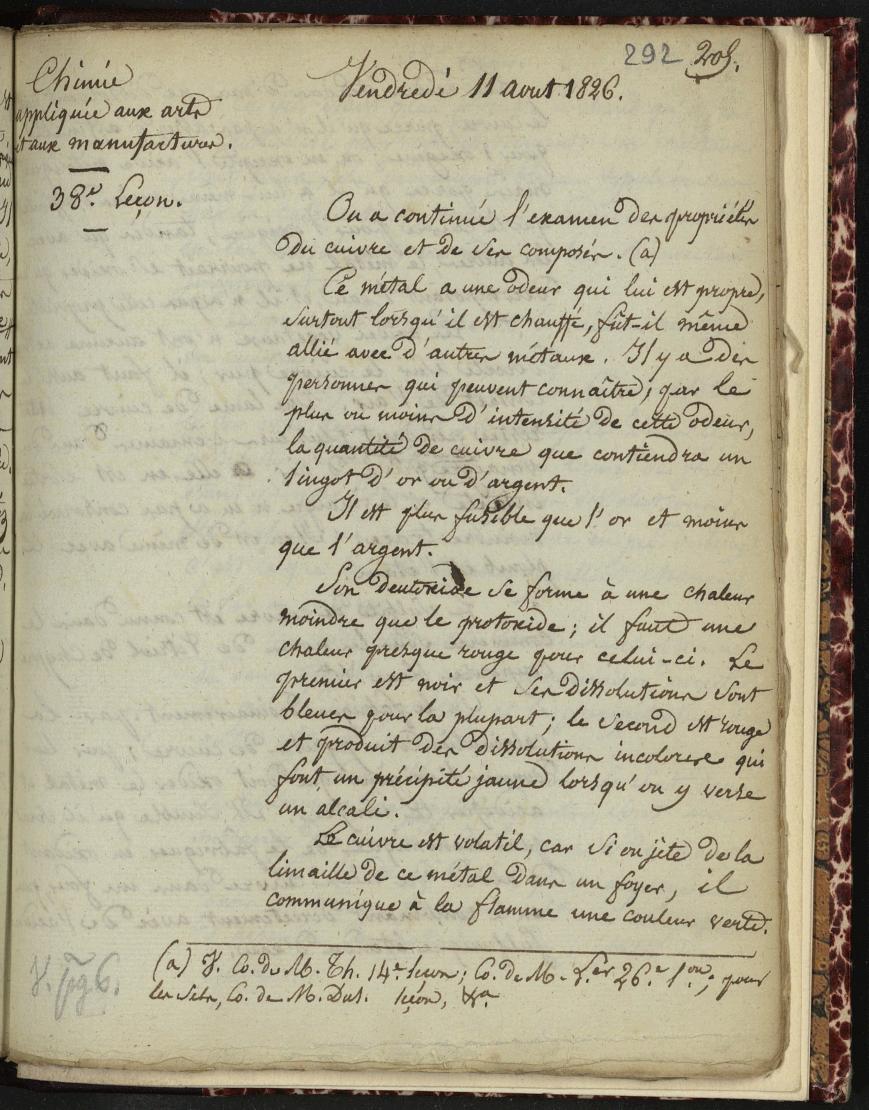 292 205.
Chimie
appliquée aux arts
et aux manufactures.
38e. Leçon.
Vendredi 11 aout 1826.
On a continué l'examen des propriétés
du cuivre et de ses composés. (a)
Ce métal a une odeur qui lui est propre,
surtout lorsqu'il est chauffé, fût-il même
allié avec d'autres métaux. Il y a des
personnes qui peuvent connaître, par le
plus ou moins d'intensité de cette odeur,
la quantité de cuivre que contiendra un
lingot d'or ou d'argent.
Il est plus fusible que l'or et moins
que l'argent.
Son deutoxide se forme à une chaleur
moindre que le protoxide; il faut une
chaleur presque rouge pour celui-ci. Le
premier est noir et ses dissolutions sont
bleues pour la plupart; le second est rouge
et produit des dissolutions incolores qui
font un précipité jaune lorsqu'on y verse
un alcali.
Le cuivre est volatil, car si on jète de la
limaille de ce métal dans un foyer, il
communique à la flamme une couleur verte.
(a) V. Co. de M. Th. 14e. leçon; Co. de M. 26.e l.on; pour
les sels, Co. de M. Dul. leçon,
V. pg 6.